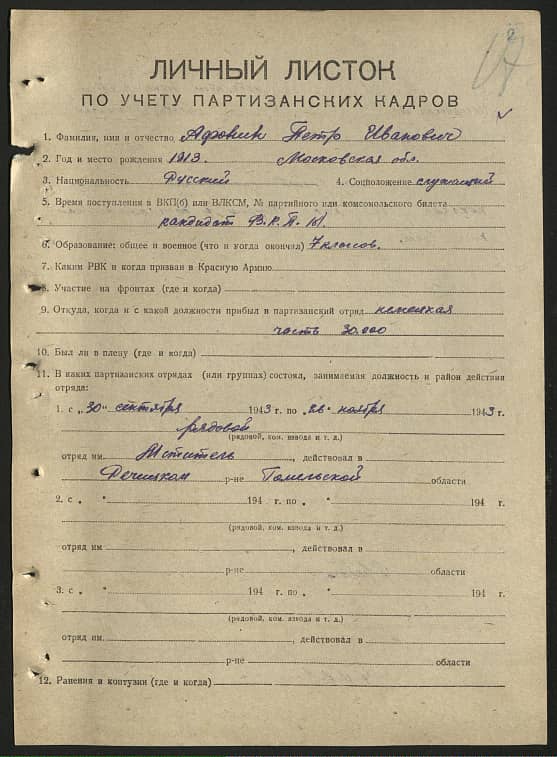 2
17
ЛИЧНЫЙ ЛИСТОК
ПО УЧЕТУ ПАРТИЗАНСКИХ КАДРОВ
1. Фамилия, имя и отчество Афонин Петр Иванович
2. Год и место рождения 1913. Московская обл.
3. Национальность Русский 4. Соцположение служащий
5. Время поступления в ВКП(б) или ВЛКСМ, № партийного или комсомольского билета
кандидат В.К.П.
6. Образование: общее и военное (что и когда окончил) 7 классов.
7. Каким РВК и когда призван в Красную Армию
8. Участие на фронтах (где и когда)
9. Откуда, когда и с какой должности прибыл в партизанский отряд немецкая
часть 30.000
10. Был ли в плену (где и когда)
11. В каких партизанских отрядах (или группах) состоял, занимаемая должность и район действия
отряда:
1. с „30" сентября 1943 г. по „26" ноября 1943 г.
рядовой
(рядовой, ком. взвода и т. д.)
отряд им Мститель, действовал в
Речицком р-не Гомельской области
2. с „ " 194 г. по „ " 194 г.
(рядовой, ком. взвода и т. д.)
отряд им , действовал в
р-не области
3. с „ " 194 г. по „ " 194 г.
(рядовой, ком. взвода и т. д.)
отряд им , действовал в
р-не области
12. Ранения и контузии (где и когда)